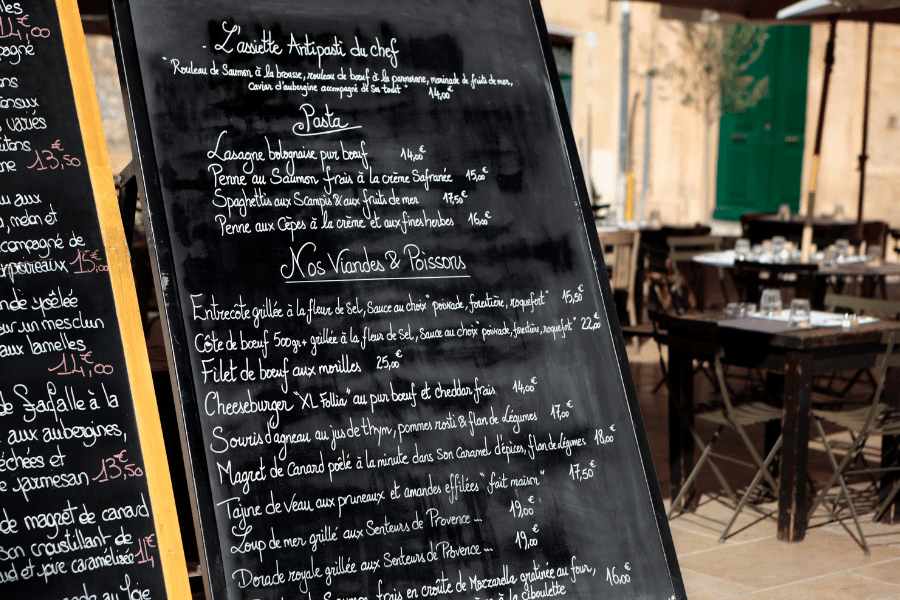 14,00€
pagné
variés
13,50€
aux
melon et
compagné de
15,00€
gelée
sur un mesclun
aux lamelles
14,00€
de Farfalle à la
aux aubergines,
séchées et
parmesan 13,50€
de magret de canard
son croustillant de
poire caramélisée 14€
L'assiette Antipasti du chef
"Rouleau de Saumon à la brousse, rouleau de bœuf à la parmesane, marinade de fruits de mer,
caviar d'aubergine accompagné de Son toast" 14,00€
Pasta
Lasagne bolognaise pur bœuf 14,00€
Penne au Saumon frais à la crème Safranée 15,00€
Spaghettis aux Scampis & aux fruits de mer 17,50€
Penne aux Cèpes à la crème et aux fines herbes 16,00€
Nos Viandes & Poissons
Entrecôte grillée à la fleur de Sel, Sauce au choix "poivrade, forestière, roquefort" 15,50€
Côte de bœuf 500gr+ grillée à la fleur de Sel, Sauce au choix "poivrade, forestière, roquefort" 22,00€
Filet de bœuf aux morilles 25,00€
Cheeseburger "XL Follia" au pur bœuf et cheddar frais 14,00€
Souris d'agneau au jus de thym, pommes rosti & flan de Légumes 17,00€
Magret de Canard poêlé à la minute dans Son Caramel d'épices, flan de Légumes 18,00€
Tajine de veau aux pruneaux et amandes effilées "fait maison" 17,50€
Loup de mer grillé aux Senteurs de Provence ... 19,00€
Dorade royale grillée aux Senteurs de Provence ... 19,00€
de Saumon frais en croûte de Mozzarella gratinée au four, 16,00€
à la ciboulette